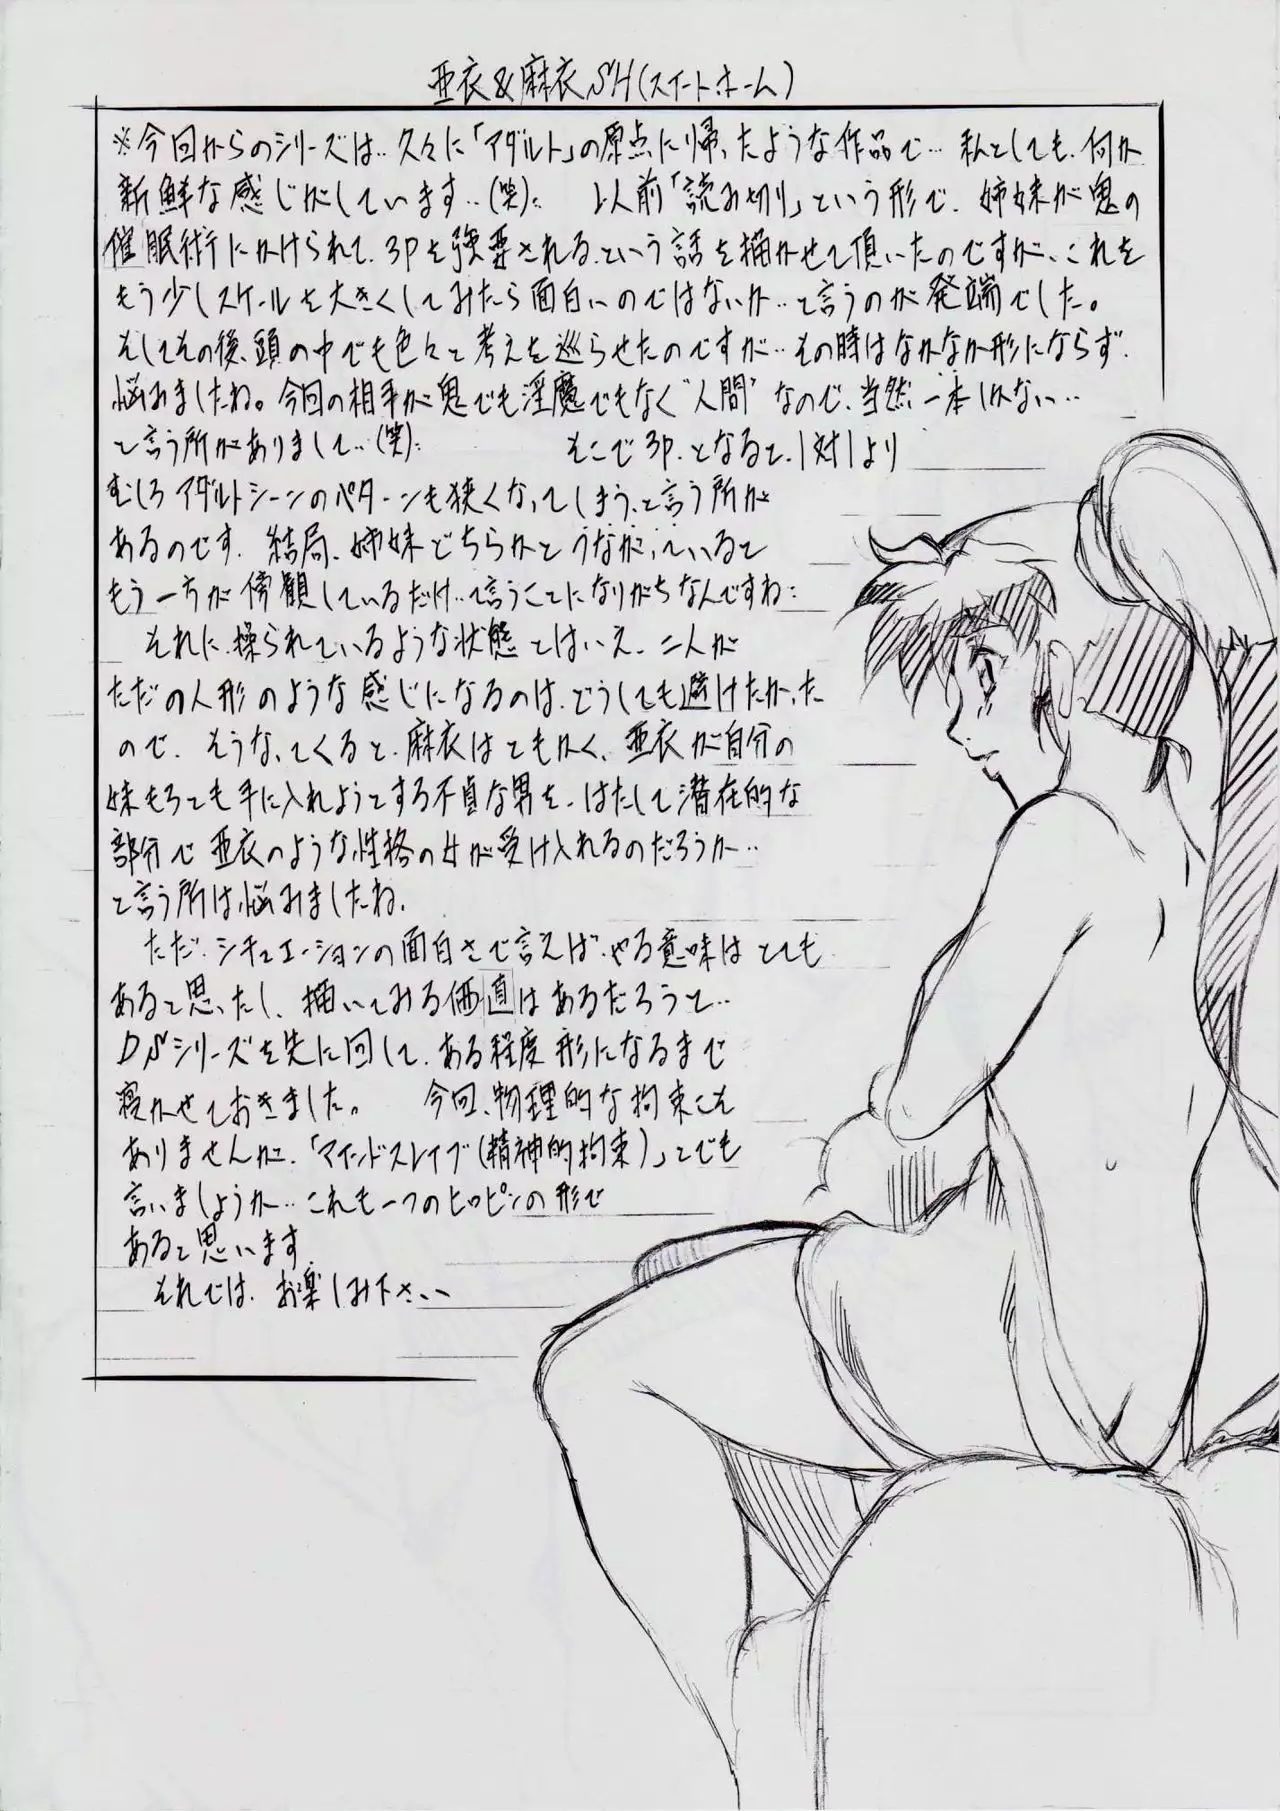 亜衣&麻衣SH(スイート・ホーム)
※今回からのシリーズは‥久々に「アダルト」の原点に帰ったような作品で‥私としても、何か
新鮮な感じがしています‥(笑)。 以前「読み切り」という形で、姉妹が鬼の
催眠術にかけられて、3Pを強要される、という話を描かせて頂いたのですが、これを
もう少しスケールを大きくしてみたら面白いのではないか‥と言うのが発端でした。
そしてその後、頭の中でも色々と考えを巡らせたのですが‥その時はなかなか形にならず、
悩みましたね。今回の相手が鬼でも淫魔でもなく"人間"なので、当然一本しかない‥
と言う所がありまして‥(笑)。 そこで3P、となると、1対1より
むしろアダルトシーンのパターンも狭くなってしまう、と言う所が
あるのです。結局、姉妹どちらかとつながっていると
もう一方が傍観しているだけ‥て言うことになりがちなんですね‥
それに、操られているような状態とはいえ、二人が
ただの人形のような感じになるのは、どうしても避けたかった
ので、そうなってくると、麻衣はともかく、亜衣が自分の
妹もろとも手に入れようとする不貞な男を、はたして潜在的な
部分で亜衣のような性格の女が受け入れるのだろうか‥
と言う所は悩みましたね、
ただ、シチュエーションの面白さで言えば、やる意味はとても
あると思ったし、描いてみる価値はあるだろうと‥
DSシリーズを先に回して、ある程度形になるまで
寝かせておきました。 今回、物理的な拘束こそ
ありませんが、「マインドスレイブ(精神的拘束)」とでも
言いましょうか‥これも一つのヒロピンの形で
あると思います。
それでは、お楽しみ下さい